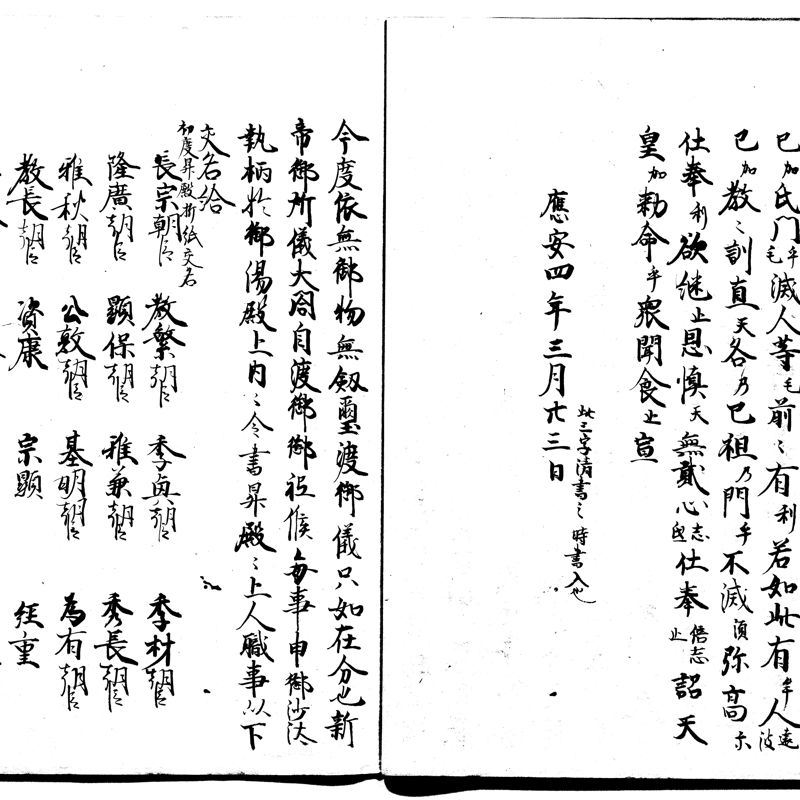 己加氏門乎毛滅人等毛前〻有利若如此有牟人遠波
己加教〻訓直天各乃己祖乃門乎不滅須弥高尓
仕奉利欲継止思慎天無貳心志弖仕奉倍志止詔天
皇加勅命乎衆聞食止宣
應安四年三月廿三日
此三字清書之時書入也
今度依無御物無劔璽渡御儀只如在分也新
帝御所儀大閤自渡御御祗候毎事申御沙汰
執柄於御湯殿上内〻令書昇殿〻上人職事以下
交名給
初度昇殿折紙交名
長宗朝臣 教繁朝臣 季興朝臣 季村朝臣
隆廣朝臣 顕保朝臣 雅兼朝臣 秀長朝臣
雅秋朝臣 公敦朝臣 基明朝臣 為有朝臣
教長朝臣 資康 宗顕 経重